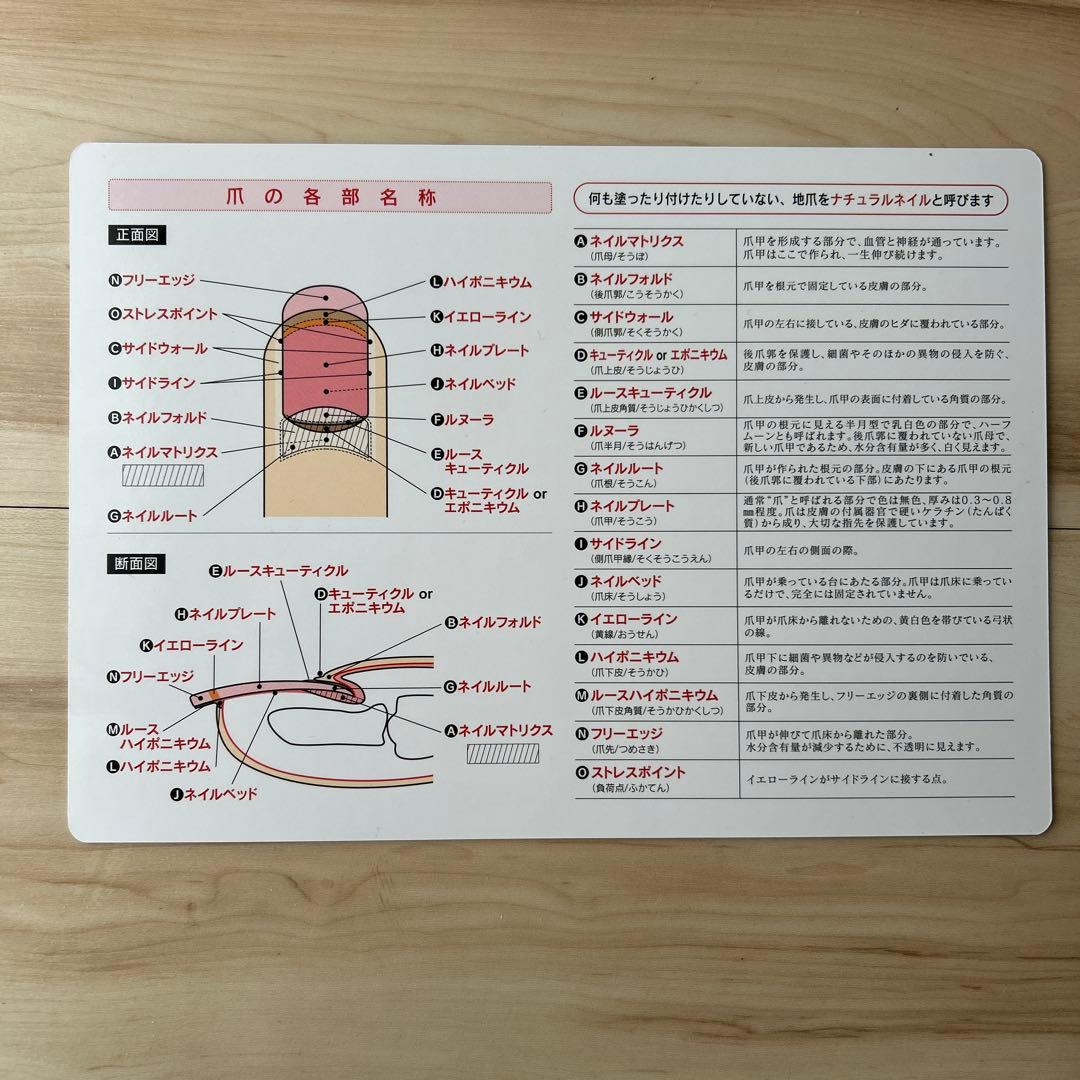 爪の各部名称
正面図
Nフリーエッジ
Oストレスポイント
Cサイドウォール
Iサイドライン
Bネイルフォルド
Aネイルマトリクス
Gネイルルート
Lハイポニキウム
Kイエローライン
Hネイルプレート
Jネイルベッド
Fルヌーラ
Eルース
キューティクル
Dキューティクル or
エポニキウム
断面図
Eルースキューティクル
Dキューティクル or
エポニキウム
Hネイルプレート
Bネイルフォルド
Kイエローライン
Nフリーエッジ
Gネイルルート
Mルース
ハイポニキウム
Aネイルマトリクス
Lハイポニキウム
Jネイルベッド
何も塗ったり付けたりしていない、地爪をナチュラルネイルと呼びます
Aネイルマトリクス
(爪母/そうぼ)
爪甲を形成する部分で、血管と神経が通っています。
爪甲はここで作られ、一生伸び続けます。
Bネイルフォルド
(後爪郭/こうそうかく)
爪甲を根元で固定している皮膚の部分。
Cサイドウォール
(側爪郭/そくそうかく)
爪甲の左右に接している、皮膚のヒダに覆われている部分。
Dキューティクル or エポニキウム
(爪上皮/そうじょうひ)
後爪郭を保護し、細菌やそのほかの異物の侵入を防ぐ、
皮膚の部分。
Eルースキューティクル
(爪上皮角質/そうじょうひかくしつ)
爪上皮から発生し、爪甲の表面に付着している角質の部分。
Fルヌーラ
(爪半月/そうはんげつ)
爪甲の根元に見える半月型で乳白色の部分で、ハーフ
ムーンとも呼ばれます。後爪郭に覆われていない爪母で、
新しい爪甲であるため、水分含有量が多く、白く見えます。
Gネイルルート
(爪根/そうこん)
爪甲が作られた根元の部分。皮膚の下にある爪甲の根元
(後爪郭に覆われている下部)にあたります。
Hネイルプレート
(爪甲/そうこう)
通常“爪”と呼ばれる部分で色は無色、厚みは0.3〜0.8
㎜程度。爪は皮膚の付属器官で硬いケラチン(たんぱく
質)から成り、大切な指先を保護しています。
Iサイドライン
(側爪甲縁/そくそうこうえん)
爪甲の左右の側面の際。
Jネイルベッド
(爪床/そうしょう)
爪甲が乗っている台にあたる部分。爪甲は爪床に乗ってい
るだけで、完全には固定されていません。
Kイエローライン
(黄線/おうせん)
爪甲が爪床から離れないための、黄白色を帯びている弓状
の線。
Lハイポニキウム
(爪下皮/そうかひ)
爪甲下に細菌や異物などが侵入するのを防いでいる、
皮膚の部分。
Mルースハイポニキウム
(爪下皮角質/そうかひかくしつ)
爪下皮から発生し、フリーエッジの裏側に付着した角質の
部分。
Nフリーエッジ
(爪先/つめさき)
爪甲が伸びて爪床から離れた部分。
水分含有量が減少するために、不透明に見えます。
Oストレスポイント
(負荷点/ふかてん)
イエローラインがサイドラインに接する点。